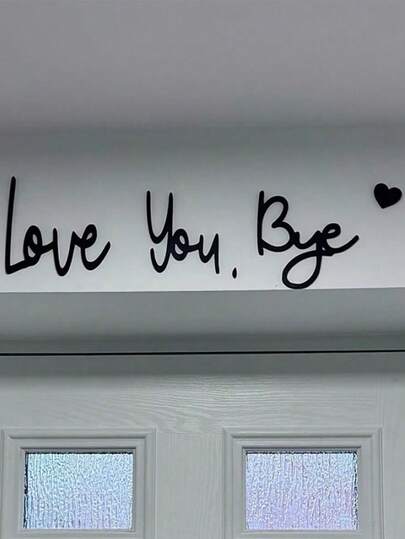 Love You, Bye